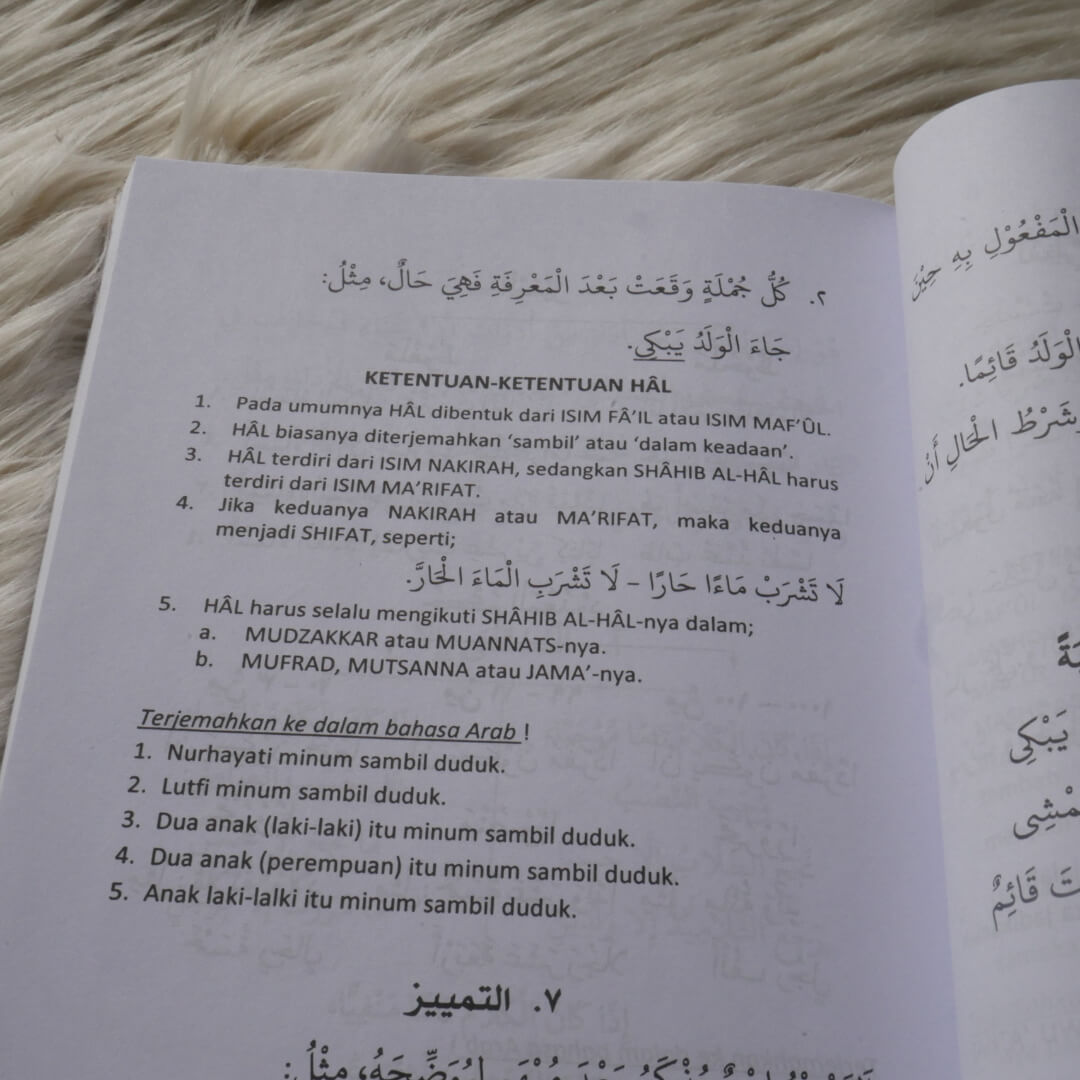 ٢. كُلُّ جُمْلَةٍ وَقَعَتْ بَعْدَ الْمَعْرِفَةِ فَهِيَ حَالٌ، مِثْلُ:
جَاءَ الْوَلَدُ يَبْكِي.
KETENTUAN-KETENTUAN HÂL
1. Pada umumnya HÂL dibentuk dari ISIM FÂ’IL atau ISIM MAF’ÛL.
2. HÂL biasanya diterjemahkan ‘sambil’ atau ‘dalam keadaan’.
3. HÂL terdiri dari ISIM NAKIRAH, sedangkan SHÂHIB AL-HÂL harus
terdiri dari ISIM MA’RIFAT.
4. Jika keduanya NAKIRAH atau MA’RIFAT, maka keduanya
menjadi SHIFAT, seperti;
لَا تَشْرَبْ مَاءًا حَارًا – لَا تَشْرَبِ الْمَاءَ الْحَارَّ.
5. HÂL harus selalu mengikuti SHÂHIB AL-HÂL-nya dalam;
a. MUDZAKKAR atau MUANNATS-nya.
b. MUFRAD, MUTSANNA atau JAMA’-nya.
Terjemahkan ke dalam bahasa Arab !
1. Nurhayati minum sambil duduk.
2. Lutfi minum sambil duduk.
3. Dua anak (laki-laki) itu minum sambil duduk.
4. Dua anak (perempuan) itu minum sambil duduk.
5. Anak laki-lalki itu minum sambil duduk.
٧. التمييز
مِثْلُ:
الْمَفْعُوْلِ بِهِ حِيْنَ
الْوَلَدُ قَائِمًا.
شَرْطُ الْحَالِ أَنْ
يَبْكِي
قَائِمٌ